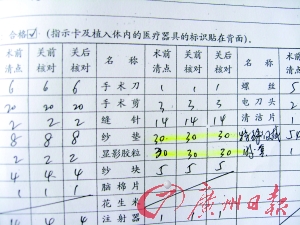 合格☑ (指示卡及植入体内的医疗器具的标识贴在背面)。
术前清点 关前核对 关后核对 名称 术前清点 关前核对 关后核对 名称 术前清点
6 6 6 手术刀 1 1 1 螺丝 5
20 20 20 手术剪 3 3 3 电刀头 2
2 2 2 缝针 14 14 14 清洁片 1
8 8 8 纱垫 30 30 30
2 2 2 显影胶粒 30 30 30
4 4 4 纱块 5 5 5
脑棉片
花生米
注射器
广州日报